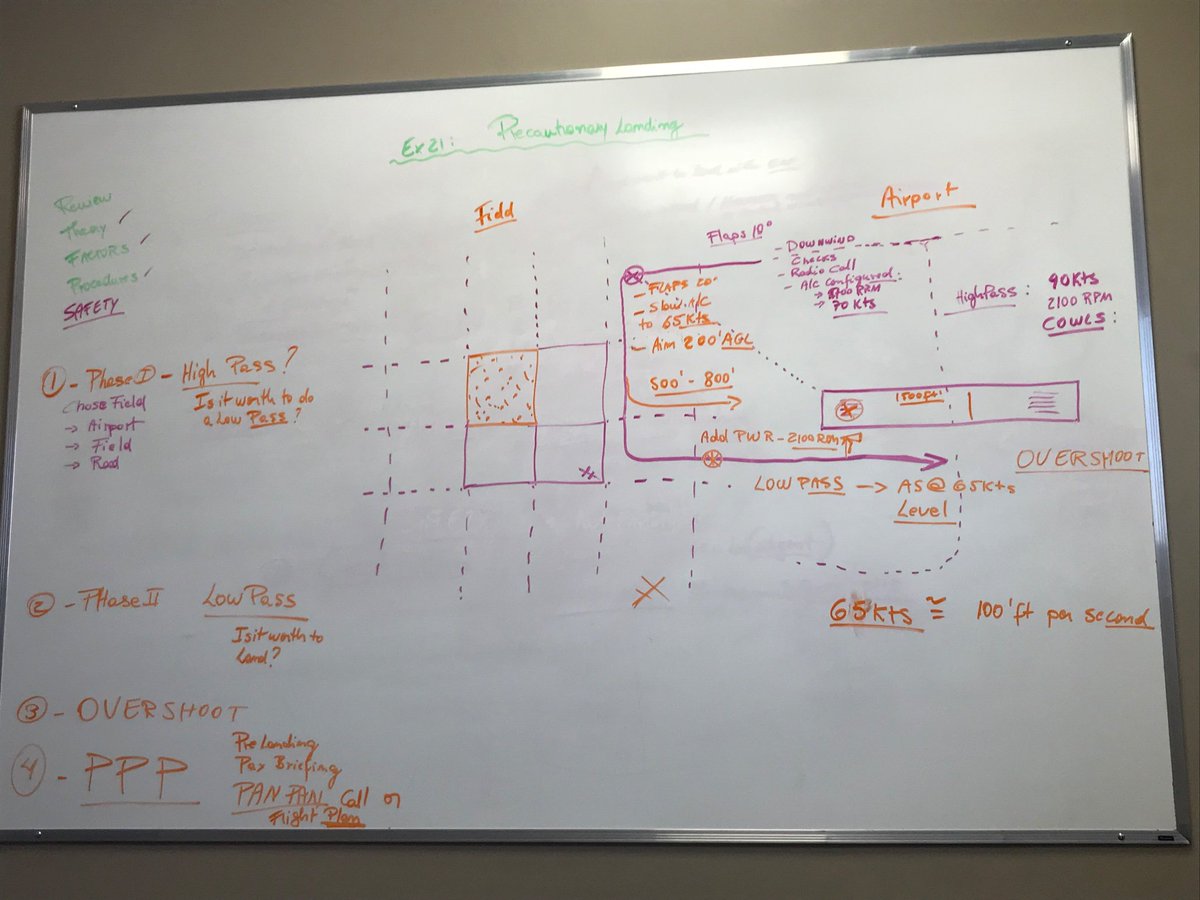 Ex 21: Precautionary Landing
Review
Theory ✓
FACTORS ✓
Procedures ✓
SAFETY
① - Phase I - High Pass?
Chose Field
→ Airport
→ Field
→ Road
Is it worth to do
a Low Pass?
② - PHase II Low Pass
Is it worth to
Land?
③ - OVERSHOOT
④ - PPP
Pre Landing
Pax Briefing
PAN PAN Call or
Flight Plan
Field
Airport
Flaps 10°
- DOWNWIND
Checks
- Radio Call
- A/c configured:
→ RRM
→ 70 KtS
- FLAPS 20°
- Slow A/C
to 65 Kts
- Aim 200' AGL
500' - 800'
HighPass: 90Kts
2100 RPM
COWLS:
1500ft
Add PWR - 2100 RPM
LOW PASS → AS @ 65Kts
Level
OVERSHOOT
65Kts ≅ 100' ft per second